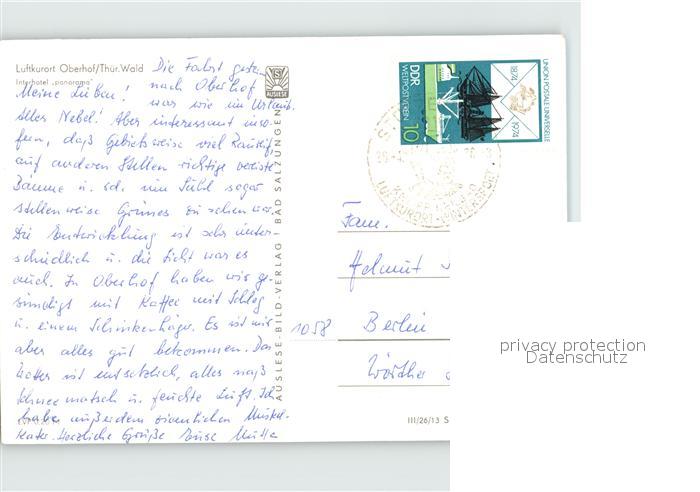 Luftkurort Oberhof/Thür. Wald
Interhotel „panorama"
Die Fahrt gestern
Meine Lieben! nach Oberhof
war wie im Urlaub.
Alles Nebel! Aber interessant inso-
fern, daß Gebietsweise viel Rauhreif,
auf anderen Stellen richtig vereiste
Bäume u. sd. um Suhl sogar
stellenweise Grünes zu sehen war.
Die Entwicklung ist sehr unter-
schiedlich u. die Luft war es
auch. In Oberhof haben wir ge-
sündigt mit Kaffee mit Schlag
u. einem Schinkenhäger. Es ist mir
aber alles gut bekommen. Das
Wetter ist entsetzlich, alles naß
Schneematsch u. feuchte Luft. Ich
habe außerdem eigentlichen Muskel-
kater. Herzliche Grüße Eure Mutti
AUSLESE
AUSLESE-BILD-VERLAG · BAD SALZUNGEN
III/26/13 S
DDR
WELTPOSTVEREIN
10
1874
1974
UNION POSTALE UNIVERSELLE
LUFTKURORT · WINTERSPORT
Fam.
Helmut
1058 Berlin
Wörther
privacy protection
Datenschutz